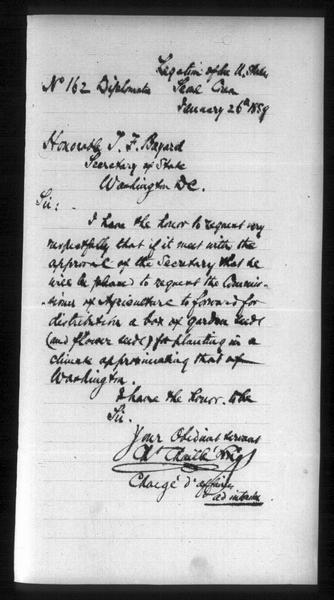 Legation of the U. States
Nº 162 Diplomatic Seoul Corea
February 26th 1889
Honorable T. F. Bayard
Secretary of State
Washington D.C.
Sir:
I have the honor to request very
respectfully that if it meet with the
approval of the Secretary that he
will be pleased to request the Commis-
-sioner of Agriculture to forward for
distribution a box of garden seeds
(and flower seeds) for planting in a
climate approximating that of
Washington.
I have the honor to be
Sir
Your Obedient servant
Chargé d'affaires
ad interim